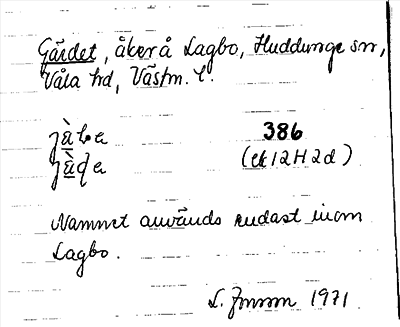 Gärdet, åker å Lagbo, Huddunge sn,
Våla hd, Västm. l.
386
(ek 12H2d)
Namnet används endast inom
Lagbo.
L. Jonsson 1971